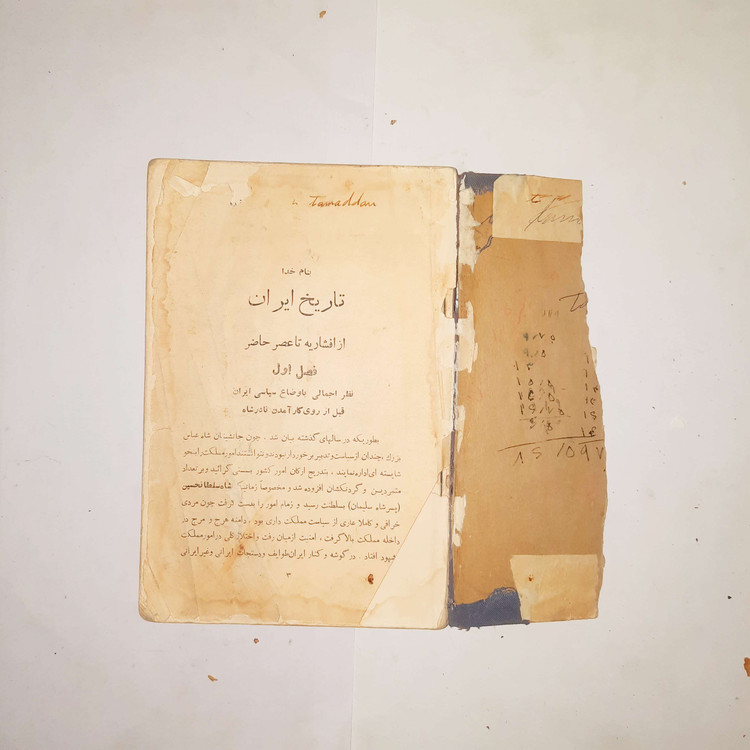 Tamaddan
بنام خدا
تاریخ ایران
از افشاریه تا عصر حاضر
فصل اول
نظر اجمالی باوضاع سیاسی ایران
قبل از روی کار آمدن نادرشاه
بطوریکه در سالهای گذشته بیان شد ، چون جانشینان شاه عباس
بزرگ چندان از سیاست و تدبیر برخوردار نبودند و نتوانستند امور مملکت را بنحو
شایسته ای اداره نمایند ، بتدریج ارکان امور کشور بسستی گرائید و بر تعداد
متمردین و گردنکشان افزوده شد و مخصوصاً زمانیکه شاه سلطانحسین
(پسر شاه سلیمان) بسلطنت رسید و زمام امور را بدست گرفت چون مردی
خرافی و کاملا عاری از سیاست مملکت داری بود ، دامنه هرج و مرج در
داخله مملکت بالا گرفت ، امنیت از میان رفت و اختلال کلی در امور مملکت
بشهود افتاد . در گوشه و کنار ایران طوایف و دستجات ایرانی و غیر ایرانی
۳